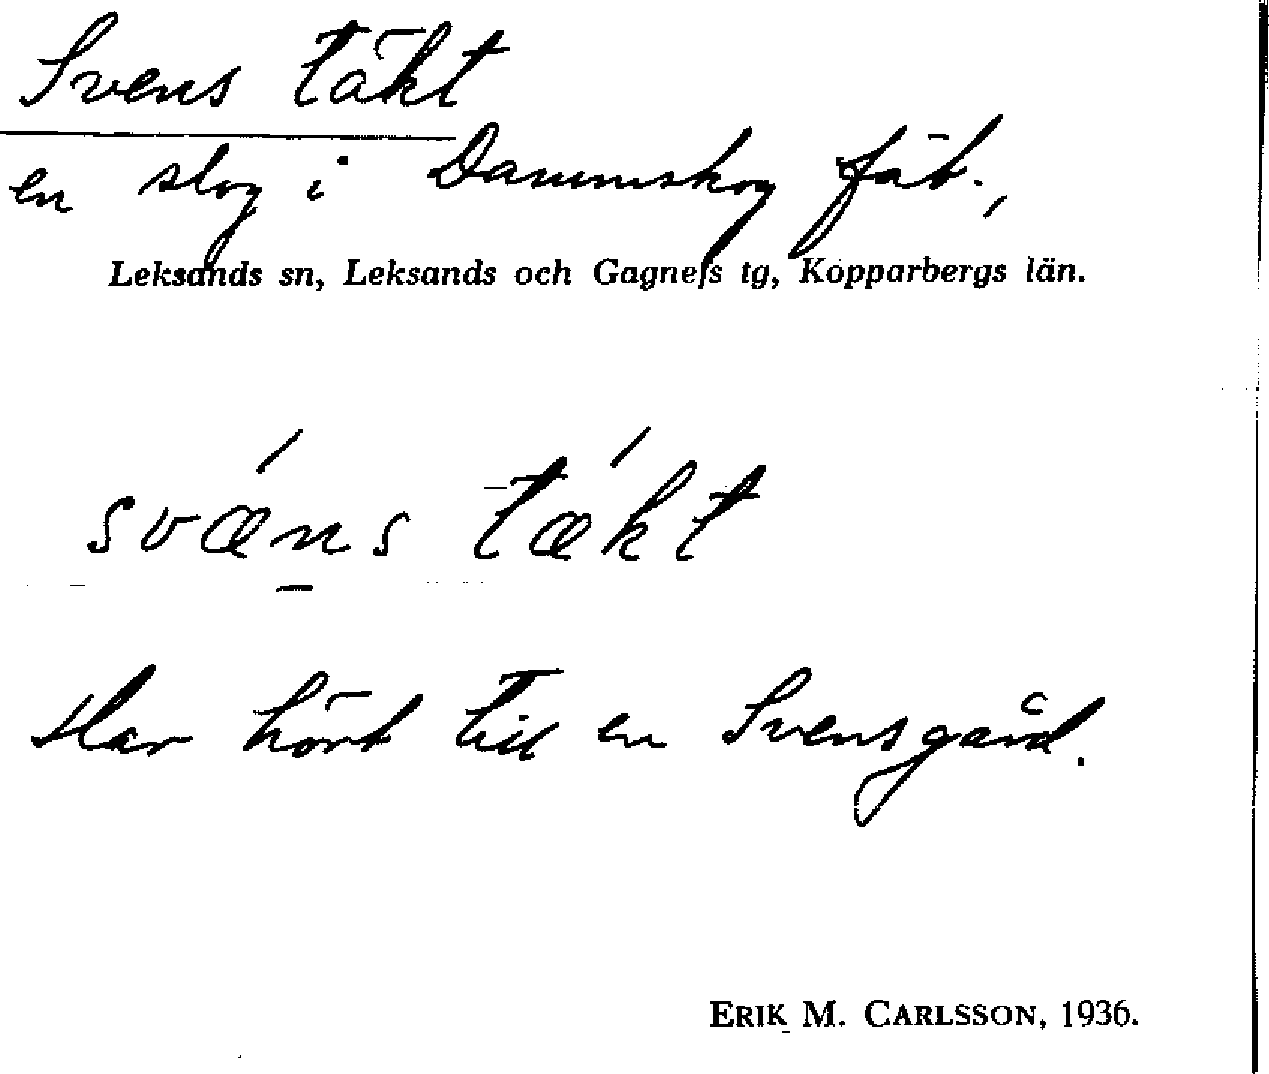 Svens täkt
en slog i Dammskog fäb.,
Leksands sn, Leksands och Gagnefs tg, Kopparbergs län.
svǽns tǽkt
Har hört till en Svensgård.
ERIK M. CARLSSON, 1936.